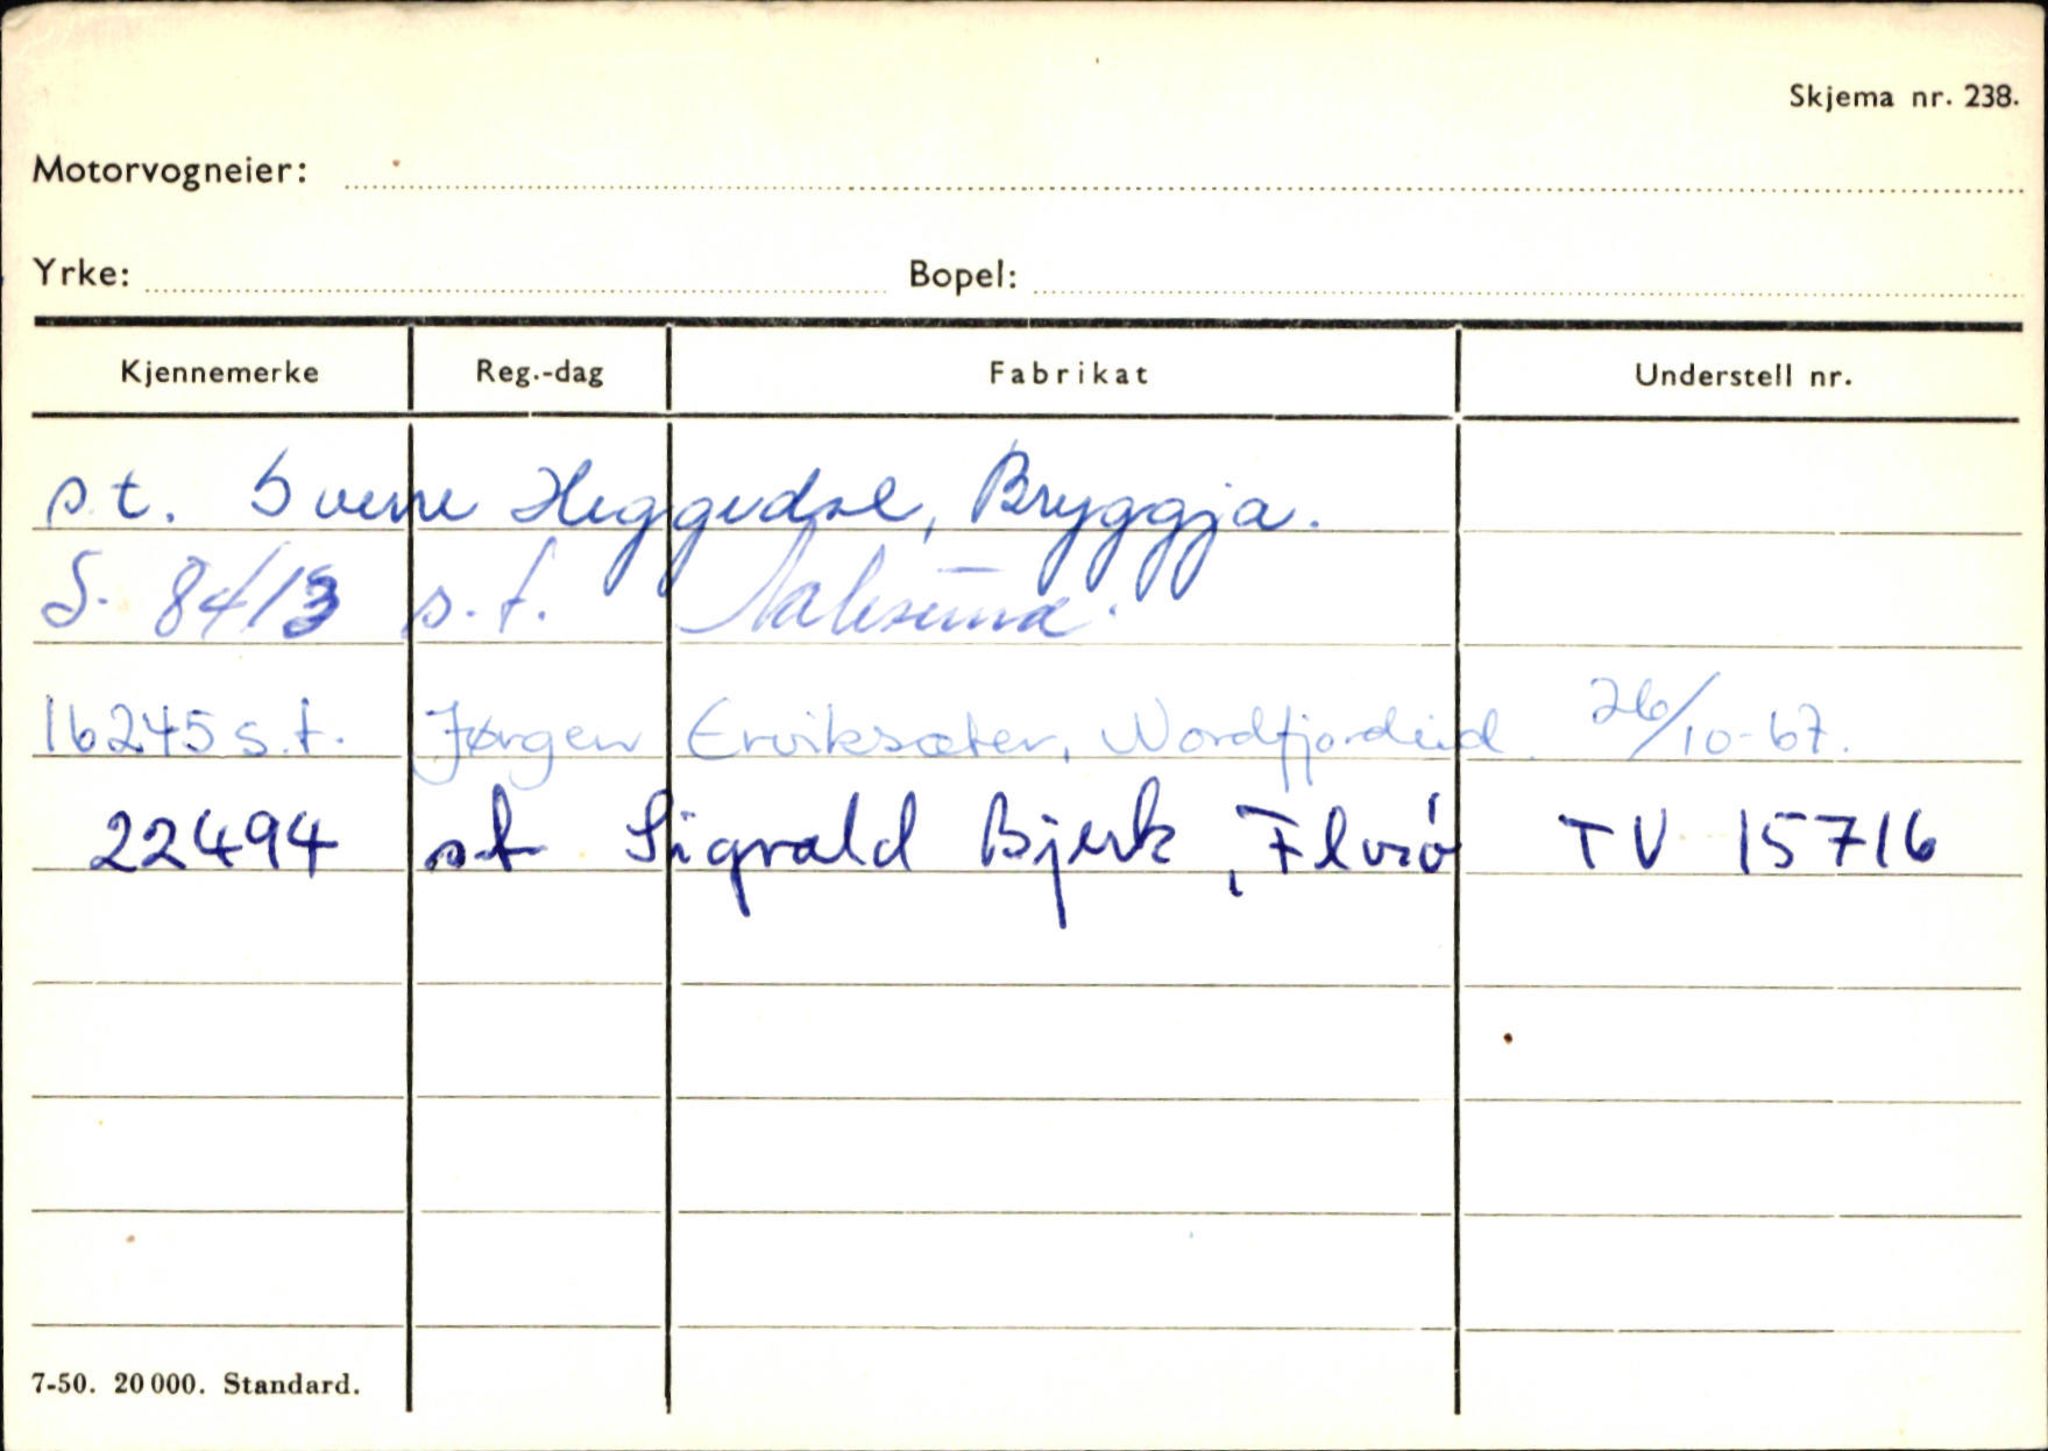 Skjema nr. 238.
Motorvogneier:
Yrke: Bopel:
Kjennemerke Reg.-dag Fabrikat Understell nr.
s.t. Sverre Heggedal, Bryggja.
S. 8413 s.t. Aalesund.
16245 s.t. Jørgen Erviksæter, Nordfjordeid. 26/10-67.
22494 st Sigvald Bjerk, Florö TV 15716
7-50. 20 000. Standard.